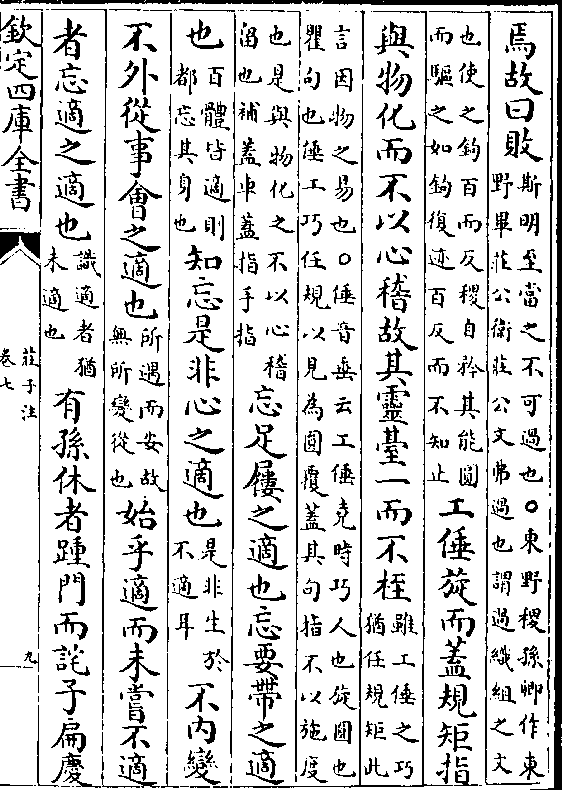 焉故曰敗斯明至當之不可過也○東野稷孫卿作東
野畢莊公衛莊公文弗過也謂過織組之文
也使之鉤百而反稷自矜其能圓
而驅之如鉤復迹百反而不知止工倕旋而蓋規矩指
與物化而不以心稽故其靈臺一而不桎雖工倕之巧
猶任規矩此
言因物之易也○倕音垂云工倕堯時巧人也旋圓也
瞿句也倕工巧任規以見為圓覆蓋其句指不以施度
也是與物化之不以心稽
㽞也補蓋車蓋指手指忘足屨之適也忘要帶之適
也百體皆適則
都忘其身也知忘是非心之適也是非生於
不適耳不内變
不外從事會之適也所遇而安故
無所變從也始乎適而未嘗不適
者忘適之適也識適者猶
未適也有孫休者踵門而詫子扁慶
欽定四庫全書
莊子注
卷七
九